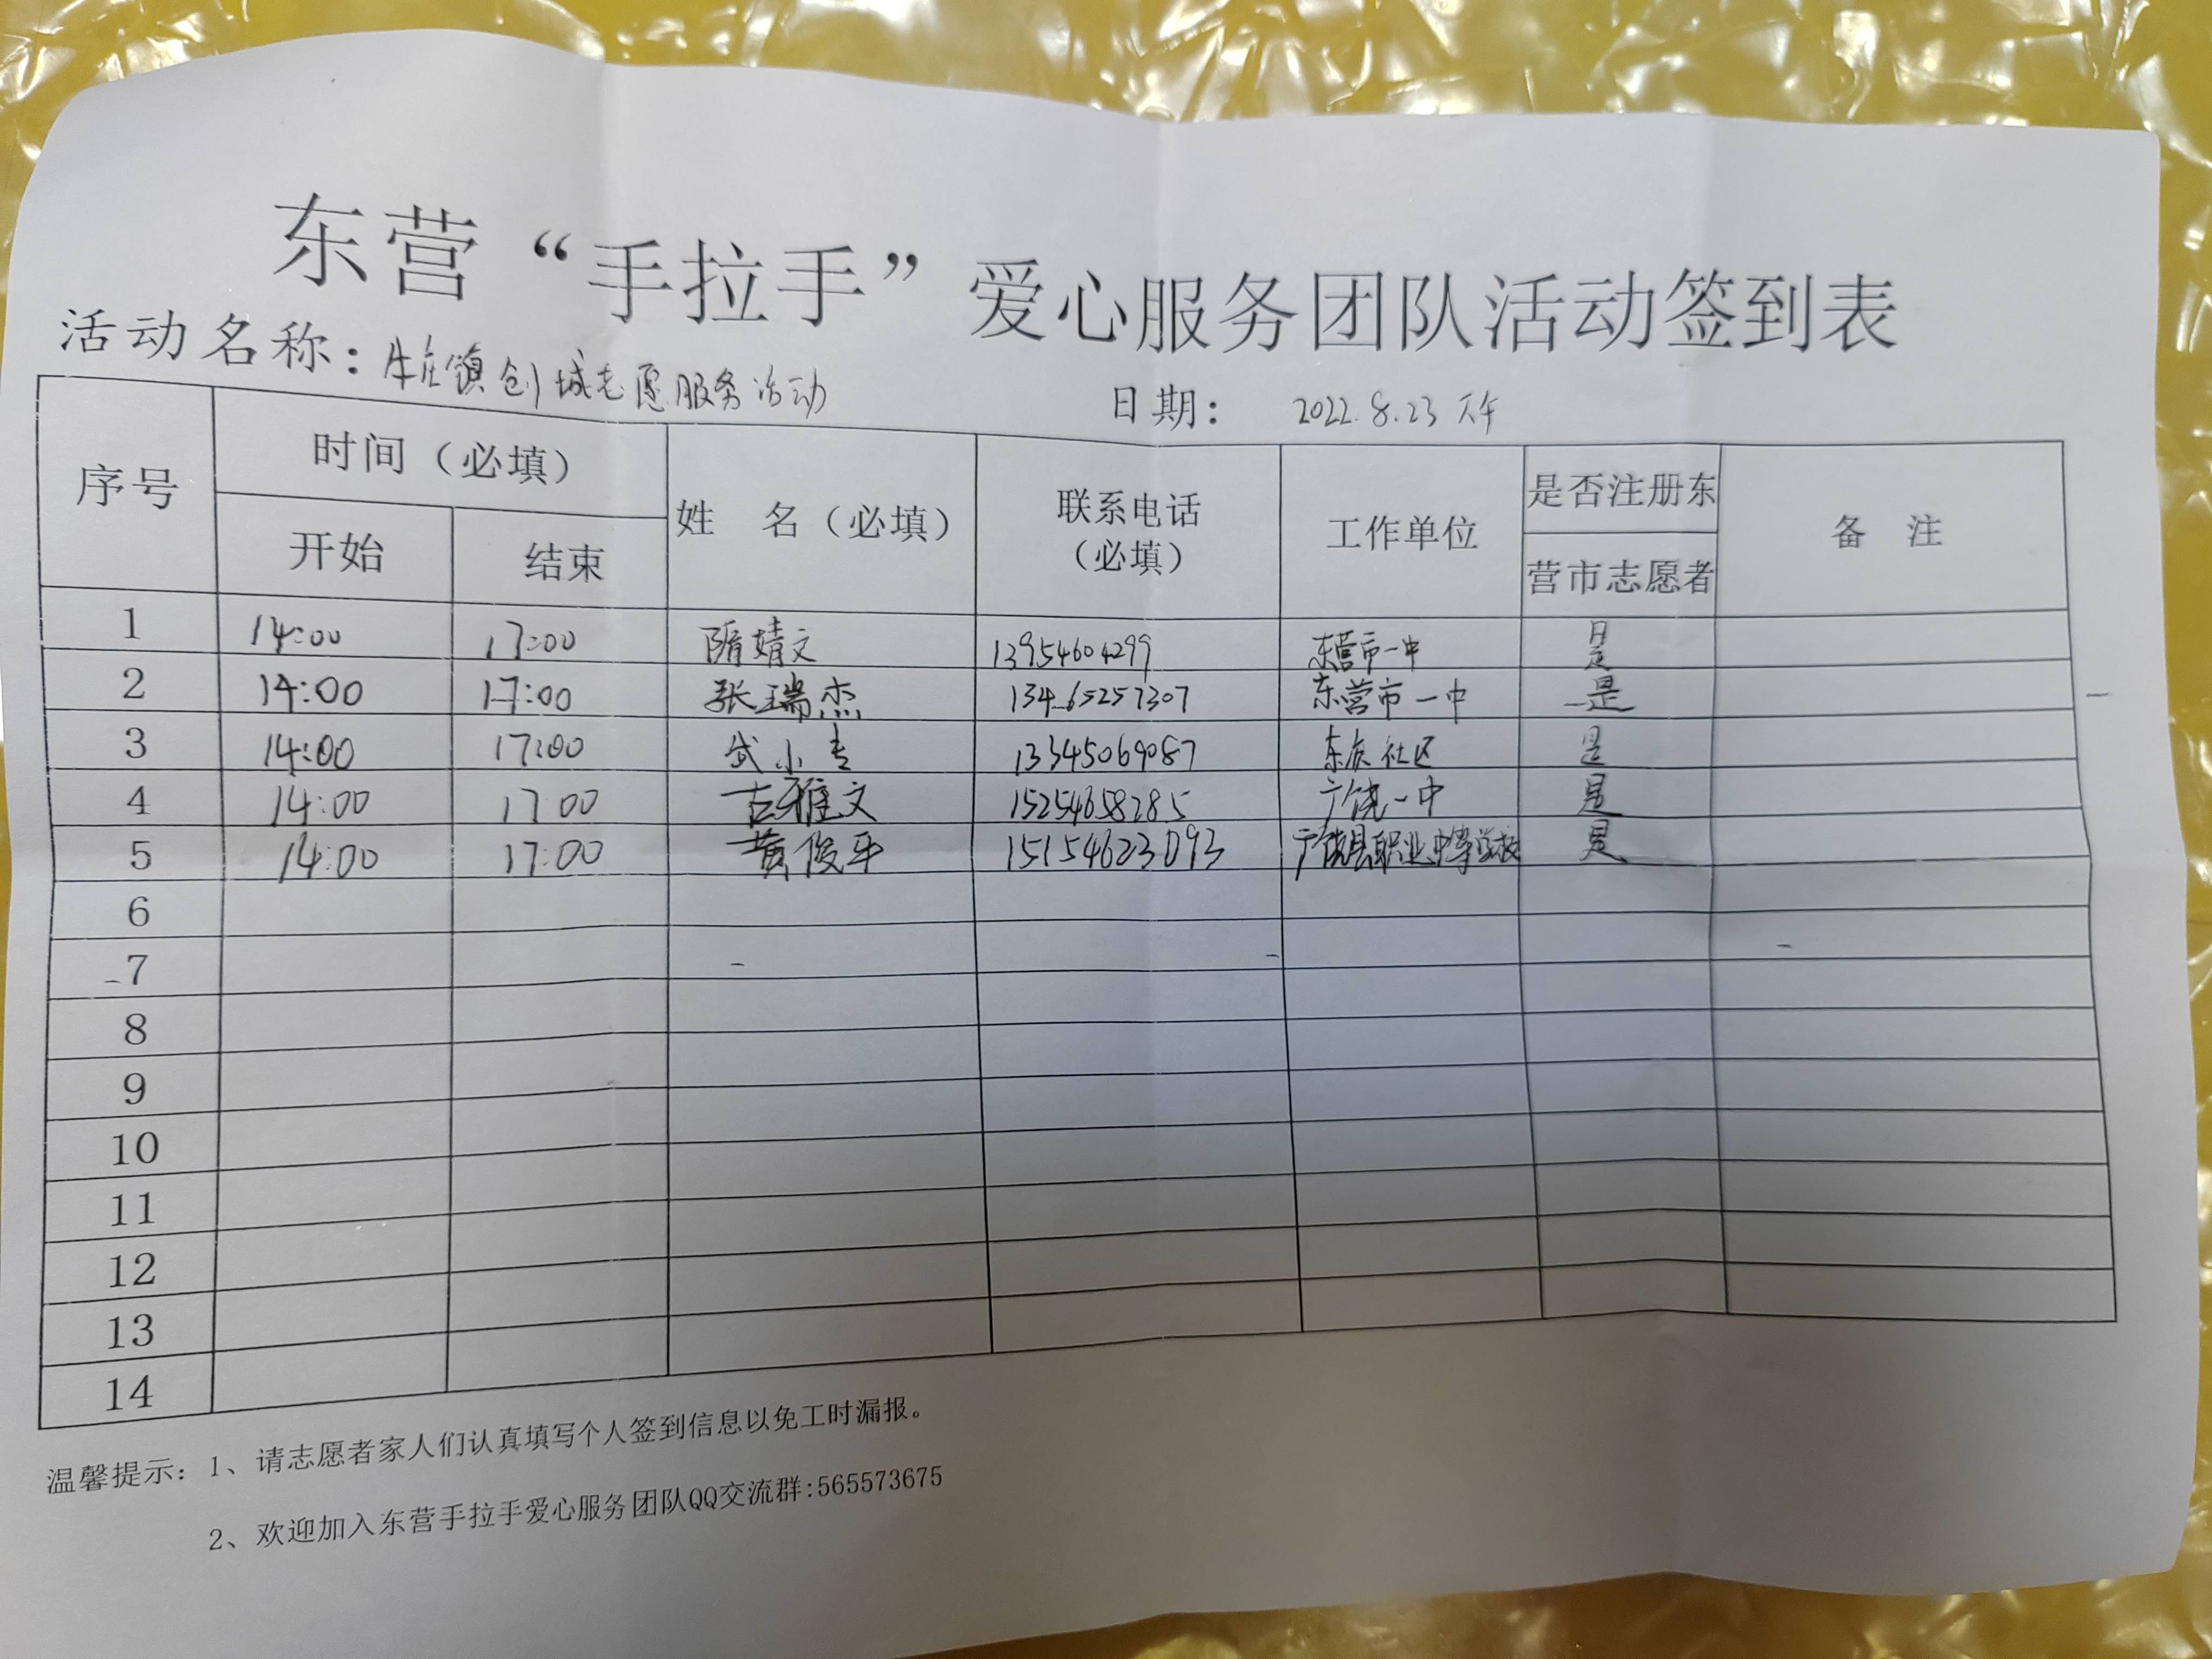 东营“手拉手”爱心服务团队活动签到表
活动名称：牛庄镇创城志愿服务活动 日期： 2022.8.23 下午
序号 时间（必填） 姓 名（必填） 联系电话（必填） 工作单位 是否注册东营市志愿者 备 注
开始 结束
1 14:00 17:00 隋婧文 13954604299 东营市一中 是
2 14:00 17:00 张瑞杰 13465257307 东营市一中 是
3 14:00 17:00 武小 13345069087 社区 是
4 14:00 17:00 古雅文 15254658285 广饶一中 是
5 14:00 17:00 黄俊平 15154623093 广饶县职业中等学校 是
6
7
8
9
10
11
12
13
14
温馨提示：1、请志愿者家人们认真填写个人签到信息以免工时漏报。
2、欢迎加入东营手拉手爱心服务团队QQ交流群:565573675